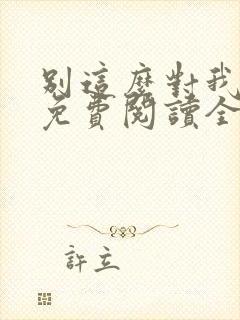 別這麼對我
免費閱讀全
許立